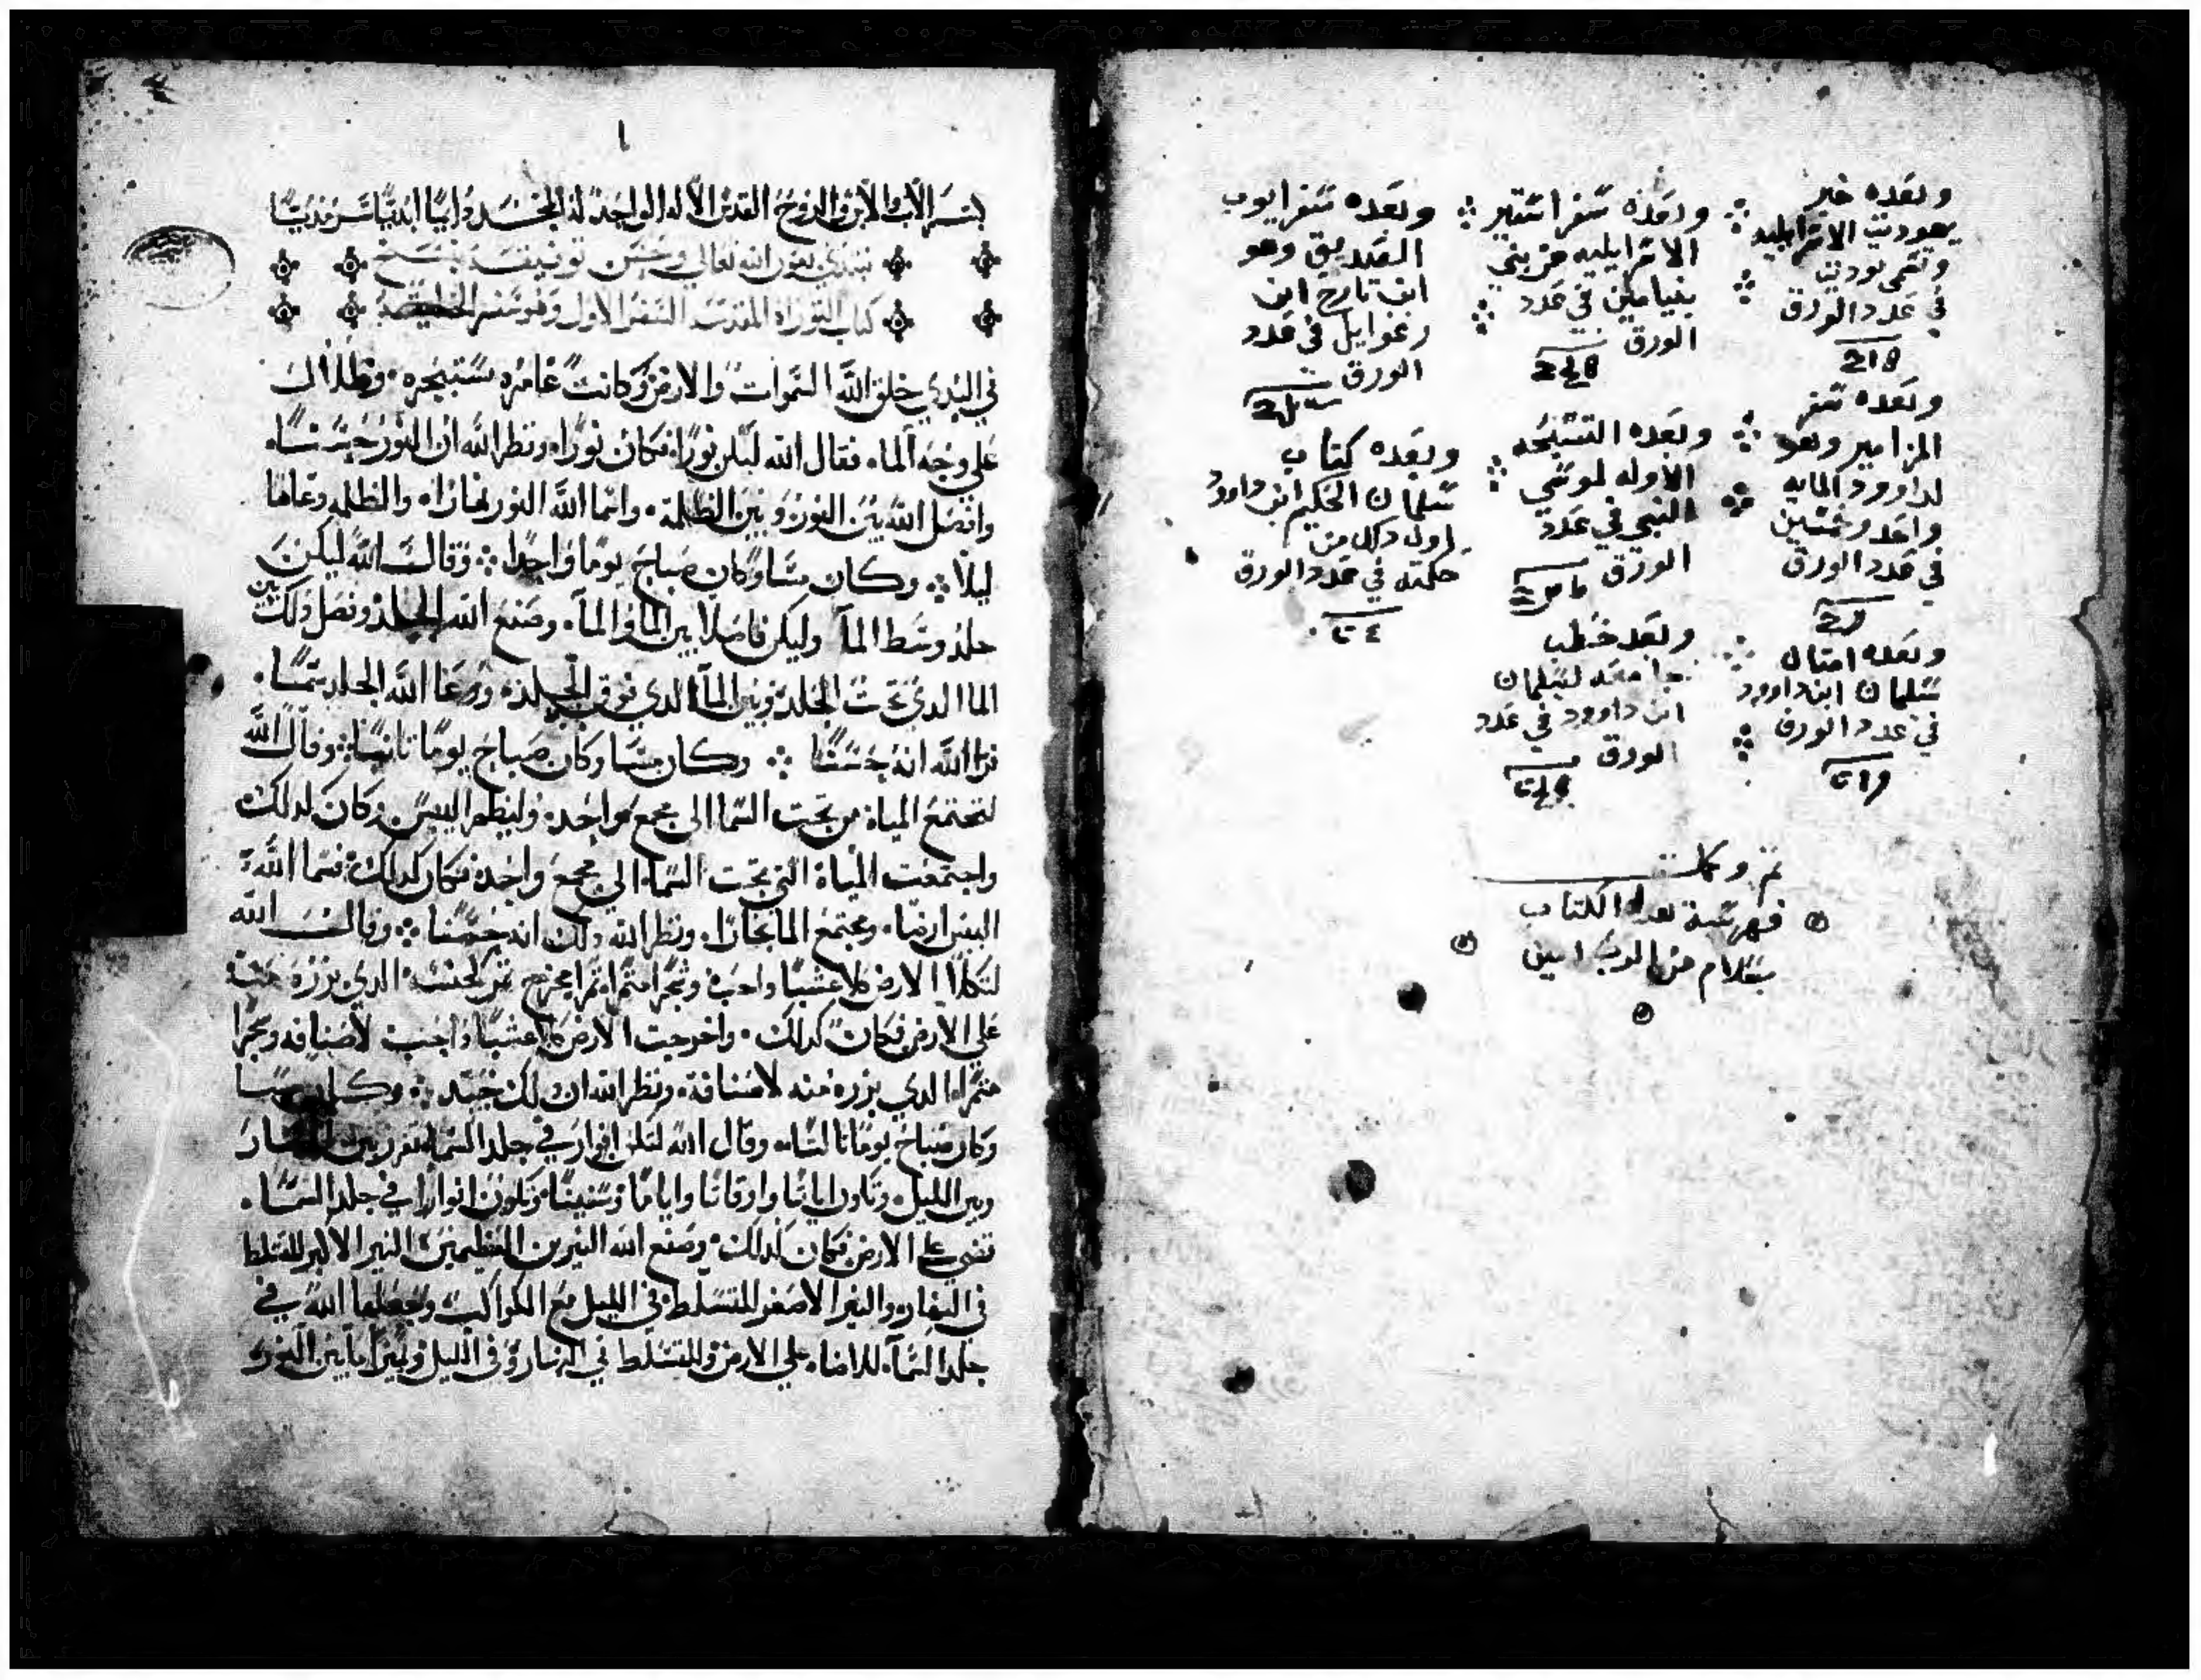 وبعده خبر
يهوديت الاسرايليه
وتسمى يوديت
في عدد الورق
218
وبعده سفر استير
الاسرايليه من بني
بنيامين في عدد
الورق
وبعده سفر ايوب
الصديق وهو
ابن تارح ابن
رغوايل في عدد
الورق
وبعده سفر
المزامير وهو
لداوود المايه
واحد وخمسين
في عدد الورق
وبعده التسبحه
الاوله لموسي
النبي في عدد
الورق
وبعده كتاب
سليمان الحكيم ابن داوود
اول من
حكمته في عدد الورق
وبعده امثال
سليمان ابن داوود
في عدد الورق
وبعد خطب
جامعه لسليمان
ابن داوود في عدد
الورق
تم وكملت
فهرسة هدا الكتاب
بسلام من الرب امين
١
بسم الاب والابن والروح القدس الاله الواحد له المجد دايما ابديا سرمديا
نبتدي بعون الله تعالي وحسن توفيقه بنسخ
كتاب التوراه المقدسه السفر الاول وهو سفر الخليقه
في البدي خلق الله السموات والارض وكانت غامره مستبحره وظلام
علي وجه الماء فقال الله ليكن نورا فكان نورا ونظر الله ان النور حسنا
وافصل الله بين النور وبين الظلمة واسما الله النور نهارا والظلمه دعاها
ليلا وكان مسا وكان صباح يوما واحدا وقال الله ليكن
جلد وسط الما وليكن فاصلا بين الما والما وصنع الله الجلد وفصل دلك بين
الما الدي تحت الجلد وبين الما الدي فوق الجلد ودعا الله الجلد سما
نرا الله انه حسنا وكان مسا وكان صباح يوما تانيا وقال الله
لتجتمع المياه من تحت السما الي مجمع واحد وليظهر اليبس وكان لدلك
واجتمعت المياة التي تحت السما الي مجمع واحد فكان كدلك فسما الله
اليبس ارضا ومجتمع الما بحارا ونظر الله دلك انه حسنا وقال الله
لتكلا الارض كلا عشبا واحب وشجرا متمرا تمرا مخرج تمر لجنسه الدي بزره منه
علي الارض فكان كدلك واخرجت الارض كلا عشبا واحب لاصنافه وشجرا
متمرا الدي بزره منه لاصنافه ونظر الله ان دلك جيد وكان مسا
وكان صباح يوما تالتا وقال الله لتكن انوار في جلد السما تفرز بين النهار
وبين الليل وتكون اياتا واوقاتا واياما وسنينا وتكون انوارا في جلد السما
تضي علي الارض فكان كدلك وصنع الله النيرين العظيمين النير الاكبر للتسلط
في النهار والنير الاصغر للتسلط في الليل مع الكواكب وجعلها الله في
جلد السما للاضاه علي الارض وللتسلط في النهار وفي الليل وليميز ما بين النور